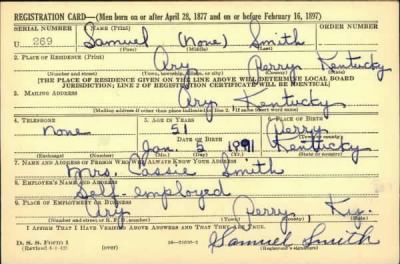 REGISTRATION CARD—(Men born on or after April 28, 1877 and on or before February 16, 1897)
SERIAL NUMBER 1. NAME (Print) ORDER NUMBER
U 269 Samuel (None) Smith
(First) (Middle) (Last)
2. PLACE OF RESIDENCE (Print)
Ary Perry Kentucky
(Number and street) (Town, township, village, or city) (County) (State)
[THE PLACE OF RESIDENCE GIVEN ON THE LINE ABOVE WILL DETERMINE LOCAL BOARD
JURISDICTION; LINE 2 OF REGISTRATION CERTIFICATE WILL BE IDENTICAL]
3. MAILING ADDRESS
Ary Kentucky
(Mailing address if other than place indicated on line 2. If same insert word same)
4. TELEPHONE 5. AGE IN YEARS 6. PLACE OF BIRTH
None 51 Perry
DATE OF BIRTH (Town or county)
Jan. 5 1891 Kentucky
(Exchange) (Number) (Mo.) (Day) (Yr.) (State or country)
7. NAME AND ADDRESS OF PERSON WHO WILL ALWAYS KNOW YOUR ADDRESS
Mrs. Cassie Smith
8. EMPLOYER'S NAME AND ADDRESS
Self-employed
9. PLACE OF EMPLOYMENT OR BUSINESS
Ary Perry Ky.
(Number and street or R. F. D. number) (Town) (County) (State)
I AFFIRM THAT I HAVE VERIFIED ABOVE ANSWERS AND THAT THEY ARE TRUE.
D. S. S. Form 1
(Revised 4-1-42) (over) Samuel Smith
(Registrant's signature)